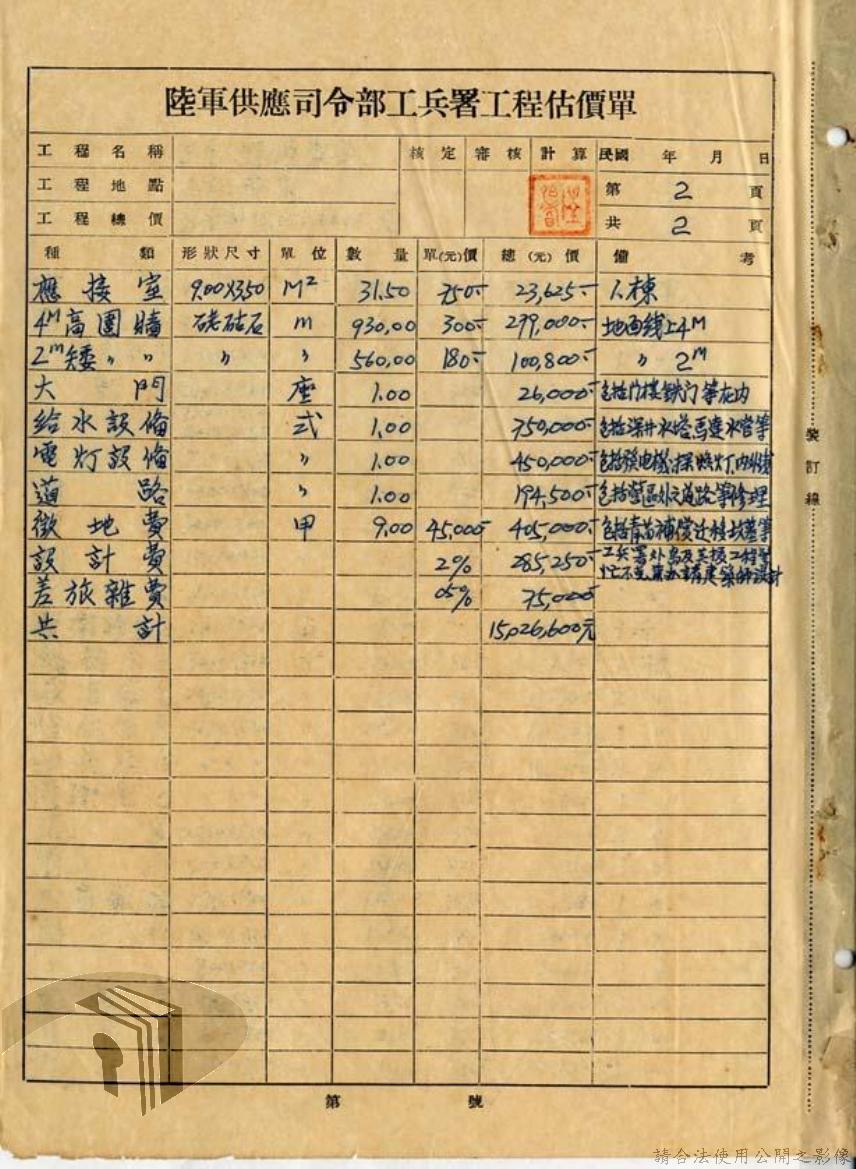 陸軍供應司令部工兵署工程估價單
工程名稱 核定 審核 計算 民國 年 月 日
工程地點 第 2 頁
工程總價 共 2 頁
種類 形狀尺寸 單位 數量 單(元)價 總(元)價 備考
應接室 9.00X3.50 M² 31.50 750.- 23,625.- 1.棟
4M高圍牆 硓𥑮石 m 930.00 300.- 279,000.- 地面线上4M
2m矮〃〃 〃 〃 560.00 180.- 100,800.- 〃 2M
大門 座 1.00 26,000.- 包括门樓鉄门等在内
給水設俻 式 1.00 750,000.- 包括深井水塔馬達水管等
電灯設俻 〃 1.00 450,000.- 包括發电機探照灯内外线
道路 〃 1.00 194,500.- 包括營區外之道路等修理
徵地費 甲 9.00 45,000.- 405,000.- 包括青苗補償迁移坟墓等
設計費 2% 285,250.- 工兵署外島及美援工程
建築師設計
差旅雜費 05% 75,000.-
共計 15,026,600元
第 號
裝訂線
請合法使用公開之影像